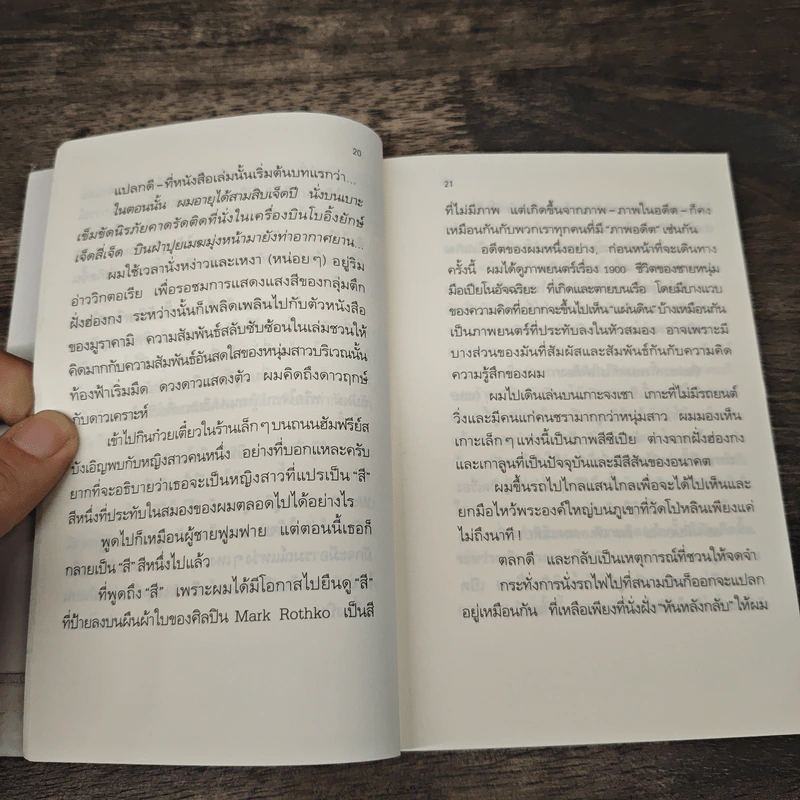 20
แปลกดี – ที่หนังสือเล่มนั้นเริ่มต้นบทแรกว่า...
ในตอนนั้น ผมอายุได้สามสิบเจ็ดปี นั่งบนเบาะ
เข็มขัดนิรภัยคาดรัดติดที่นั่งในเครื่องบินโบอิ้งยักษ์
เจ็ดสี่เจ็ด บินฝ่าปุยเมฆมุ่งหน้ามายังท่าอากาศยาน...
ผมใช้เวลานั่งหง่าวและเหงา (หน่อยๆ) อยู่ริม
อ่าววิกตอเรีย เพื่อรอชมการแสดงแสงสีของกลุ่มตึก
ฝั่งฮ่องกง ระหว่างนั้นก็เพลิดเพลินไปกับตัวหนังสือ
ของมูราคามิ ความสัมพันธ์สลับซับซ้อนในเล่มชวนให้
คิดมากกับความสัมพันธ์อันสดใสของหนุ่มสาวบริเวณนั้น
ท้องฟ้าเริ่มมืด ดวงดาวแสดงตัว ผมคิดถึงดาวฤกษ์
กับดาวเคราะห์
เข้าไปกินก๋วยเตี๋ยวในร้านเล็กๆ บนถนนฮัมฟรีย์ส
บังเอิญพบกับหญิงสาวคนหนึ่ง อย่างที่บอกแหละครับ
ยากที่จะอธิบายว่าเธอจะเป็นหญิงสาวที่แปรเป็น “สี”
สีหนึ่งที่ประทับในสมองของผมตลอดไปได้อย่างไร
พูดไปก็เหมือนผู้ชายฟูมฟาย แต่ตอนนี้เธอก็
กลายเป็น “สี” สีหนึ่งไปแล้ว
ที่พูดถึง “สี” เพราะผมได้มีโอกาสไปยืนดู “สี”
ที่ป้ายลงบนผืนผ้าใบของศิลปิน Mark Rothko เป็นสี
21
ที่ไม่มีภาพ แต่เกิดขึ้นจากภาพ – ภาพในอดีต – ก็คง
เหมือนกันกับพวกเราทุกคนที่มี “ภาพอดีต” เช่นกัน
อดีตของผมหนึ่งอย่าง, ก่อนหน้าที่จะเดินทาง
ครั้งนี้ ผมได้ดูภาพยนตร์เรื่อง 1900 ชีวิตของชายหนุ่ม
มือเปียโนอัจฉริยะ ที่เกิดและตายบนเรือ โดยมีบางแวบ
ของความคิดที่อยากจะขึ้นไปเห็น “แผ่นดิน” บ้างเหมือนกัน
เป็นภาพยนตร์ที่ประทับลงในหัวสมอง อาจเพราะมี
บางส่วนของมันที่สัมผัสและสัมพันธ์กันกับความคิด
ความรู้สึกของผม
ผมไปเดินเล่นบนเกาะจงเชา เกาะที่ไม่มีรถยนต์
วิ่งและมีคนแก่คนชรามากกว่าหนุ่มสาว ผมมองเห็น
เกาะเล็กๆ แห่งนี้เป็นภาพสีซีเปีย ต่างจากฝั่งฮ่องกง
และเกาลูนที่เป็นปัจจุบันและมีสีสันของอนาคต
ผมขึ้นรถไปไกลแสนไกลเพื่อจะได้ไปเห็นและ
ยกมือไหว้พระองค์ใหญ่บนภูเขาที่วัดโป่หลินเพียงแค่
ไม่ถึงนาที !
ตลกดี และกลับเป็นเหตุการณ์ที่ชวนให้จดจำ
กระทั่งการนั่งรถไฟไปที่สนามบินก็ออกจะแปลก
อยู่เหมือนกัน ที่เหลือเพียงที่นั่งฝั่ง “หันหลังกลับ” ให้ผม